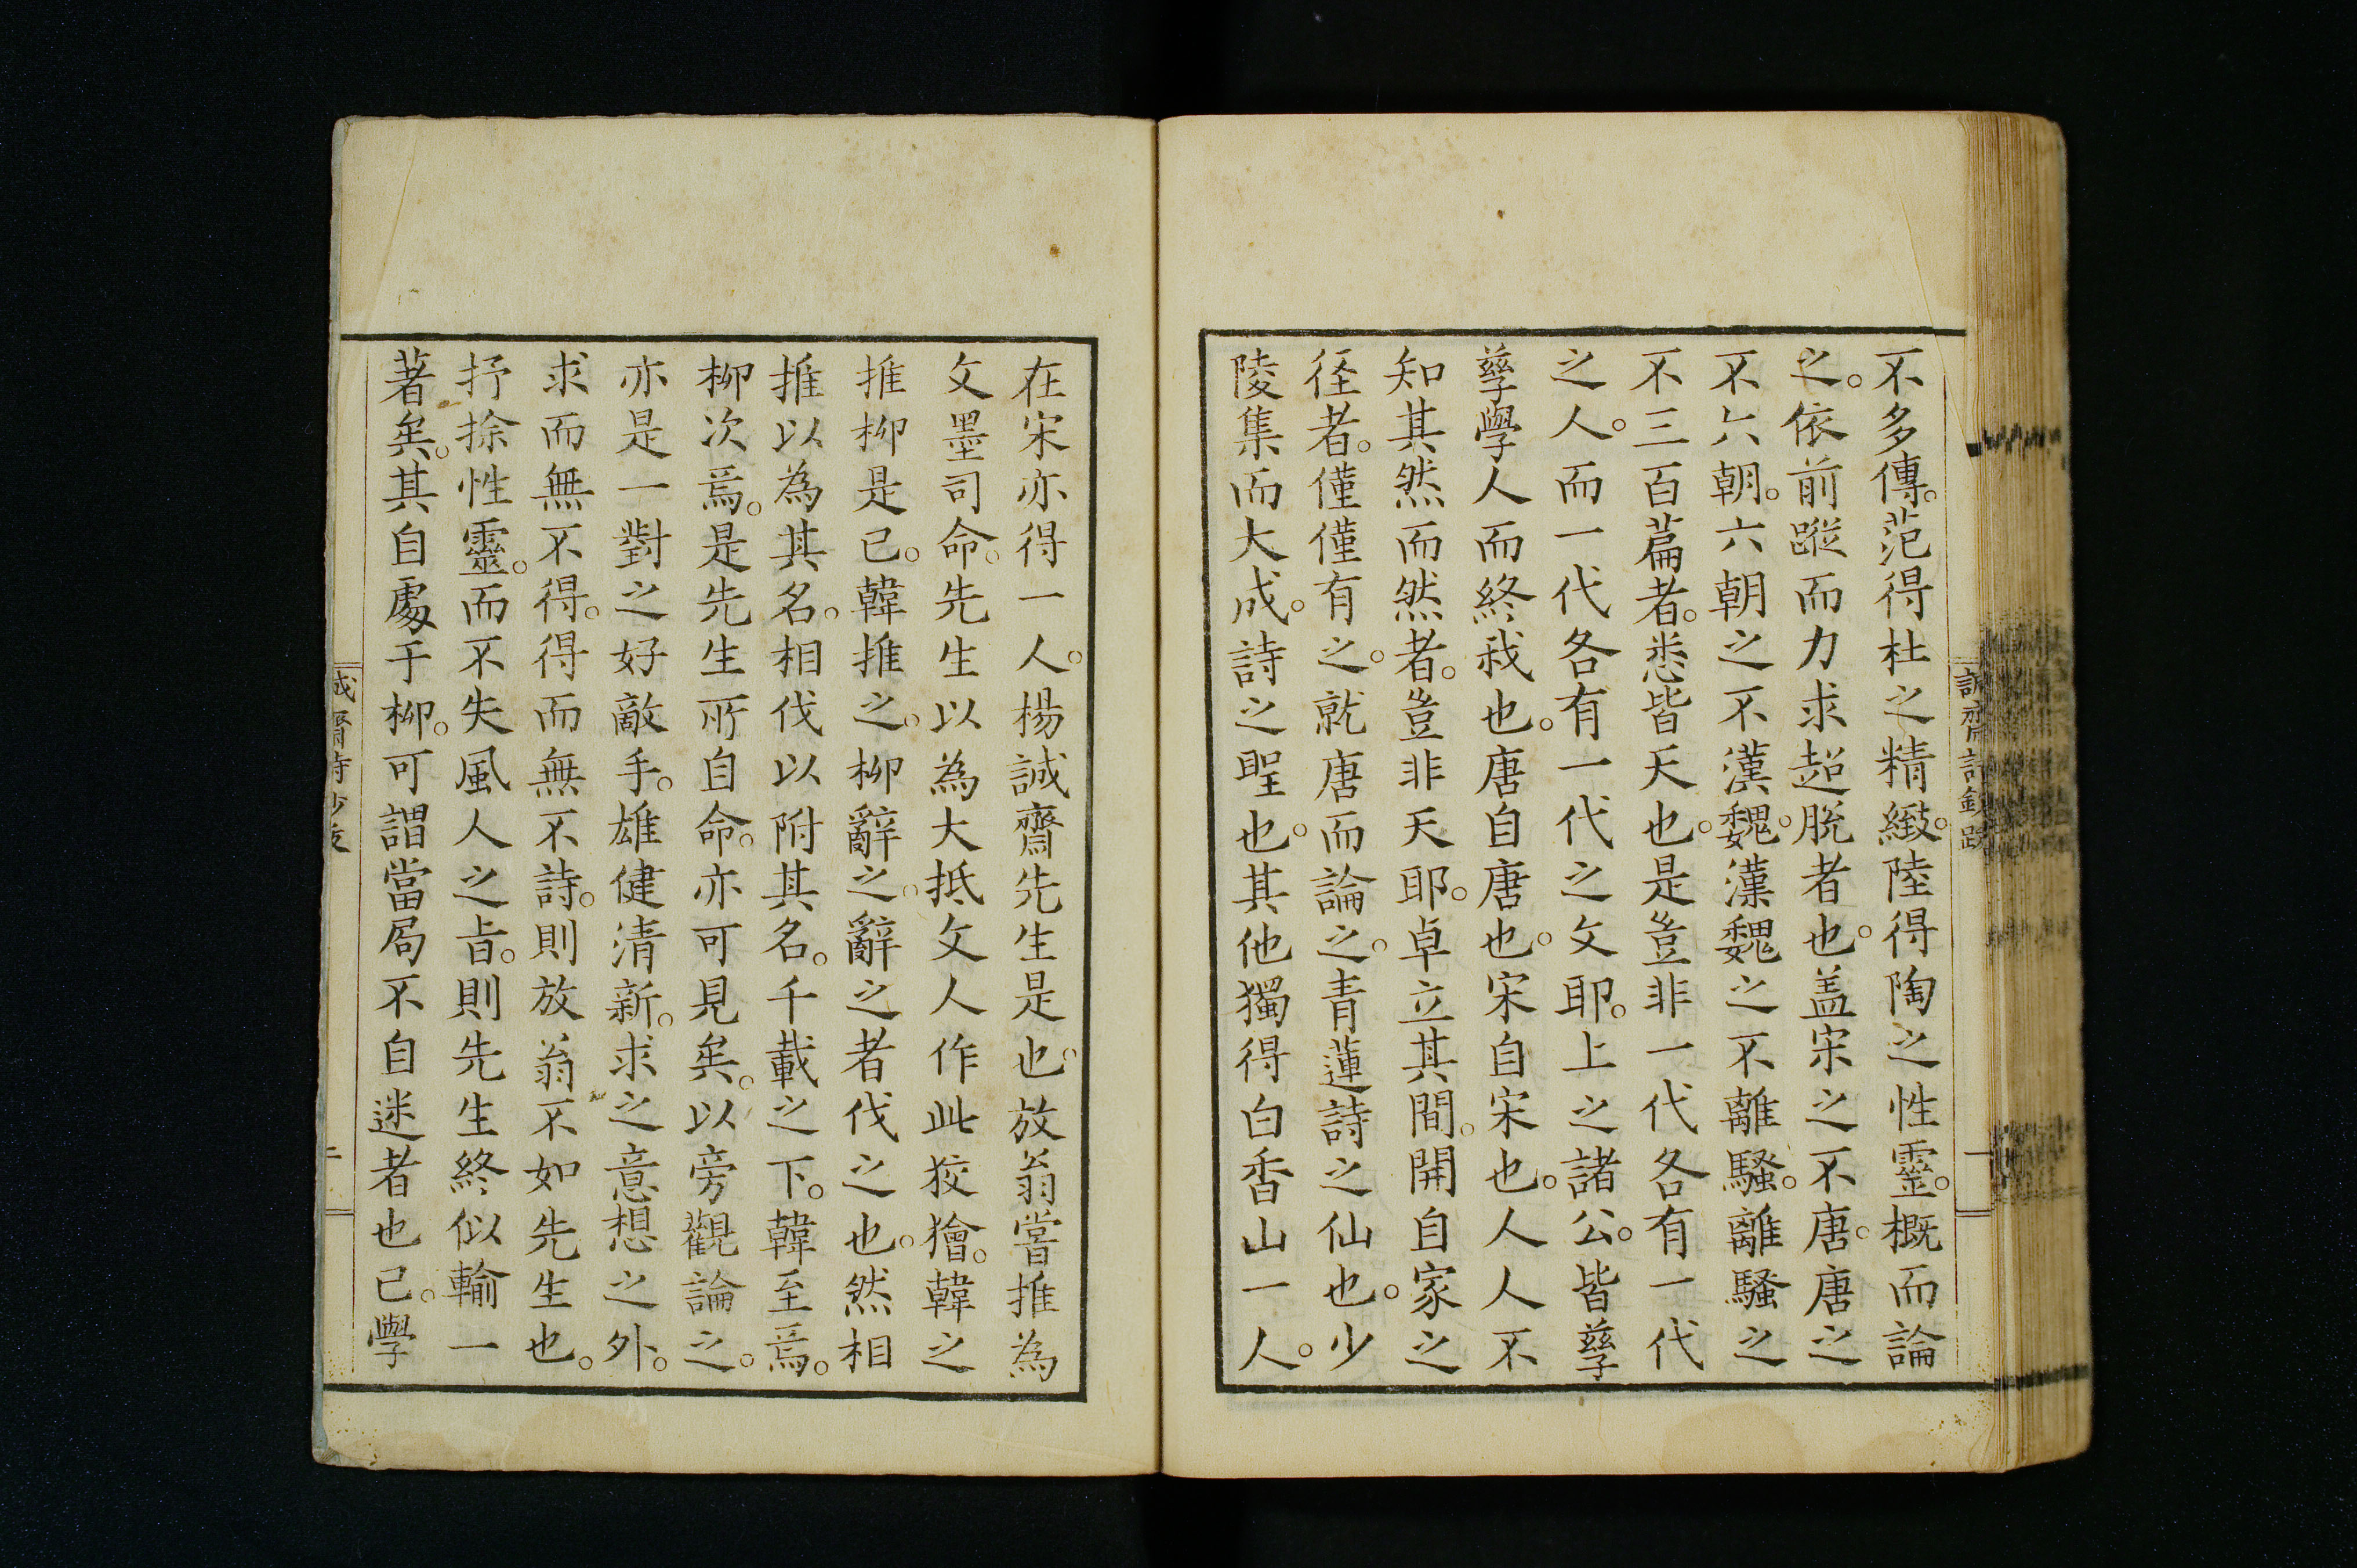 不多傳。范得杜之精緻。陸得陶之性靈。概而論
之。依前蹤而力求超脫者也。盖宋之不唐。唐之
不六朝。六朝之不漢魏。漢魏之不離騷。離騷之
不三百篇者。悉皆天也。是豈非一代各有一代
之人。而一代各有一代之文耶。上之諸公。皆孳
孳學人而終我也。唐自唐也。宋自宋也。人人不
知其然而然者。豈非天耶。卓立其間。開自家之
徑者。僅僅有之。就唐而論之。青蓮詩之仙也。少
陵集而大成。詩之聖也。其他獨得白香山一人。
在宋亦得一人。楊誠齋先生是也。放翁嘗推為
文墨司命。先生以為大抵文人作此狡獪。韓之
推柳是已。韓推之。柳辭之。辭之者伐之也。然相
推以為其名。相伐以附其名。千載之下。韓至焉。
柳次焉。是先生所自命。亦可見矣。以旁觀論之。
亦是一對之好敵手。雄健清新。求之意想之外。
求而無不得。得而無不詩。則放翁不如先生也。
抒捈性靈。而不失風人之旨。則先生終似輸一
著矣。其自處于柳。可謂當局不自迷者也已。學